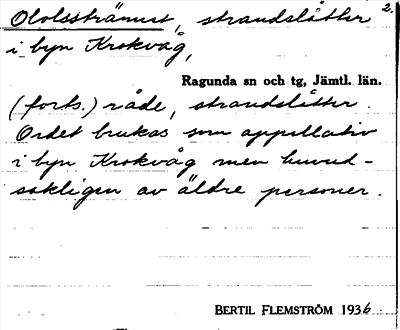 Ololsströmist, strandslåtter 2.
i byn Krokvåg,
Ragunda sn och tg, Jämtl. län.
(forts.) råde, strandslåtter.
Ordet brukas som appellativ
i byn Krokvåg men huvud-
sakligen av äldre personer.
BERTIL FLEMSTRÖM 1936